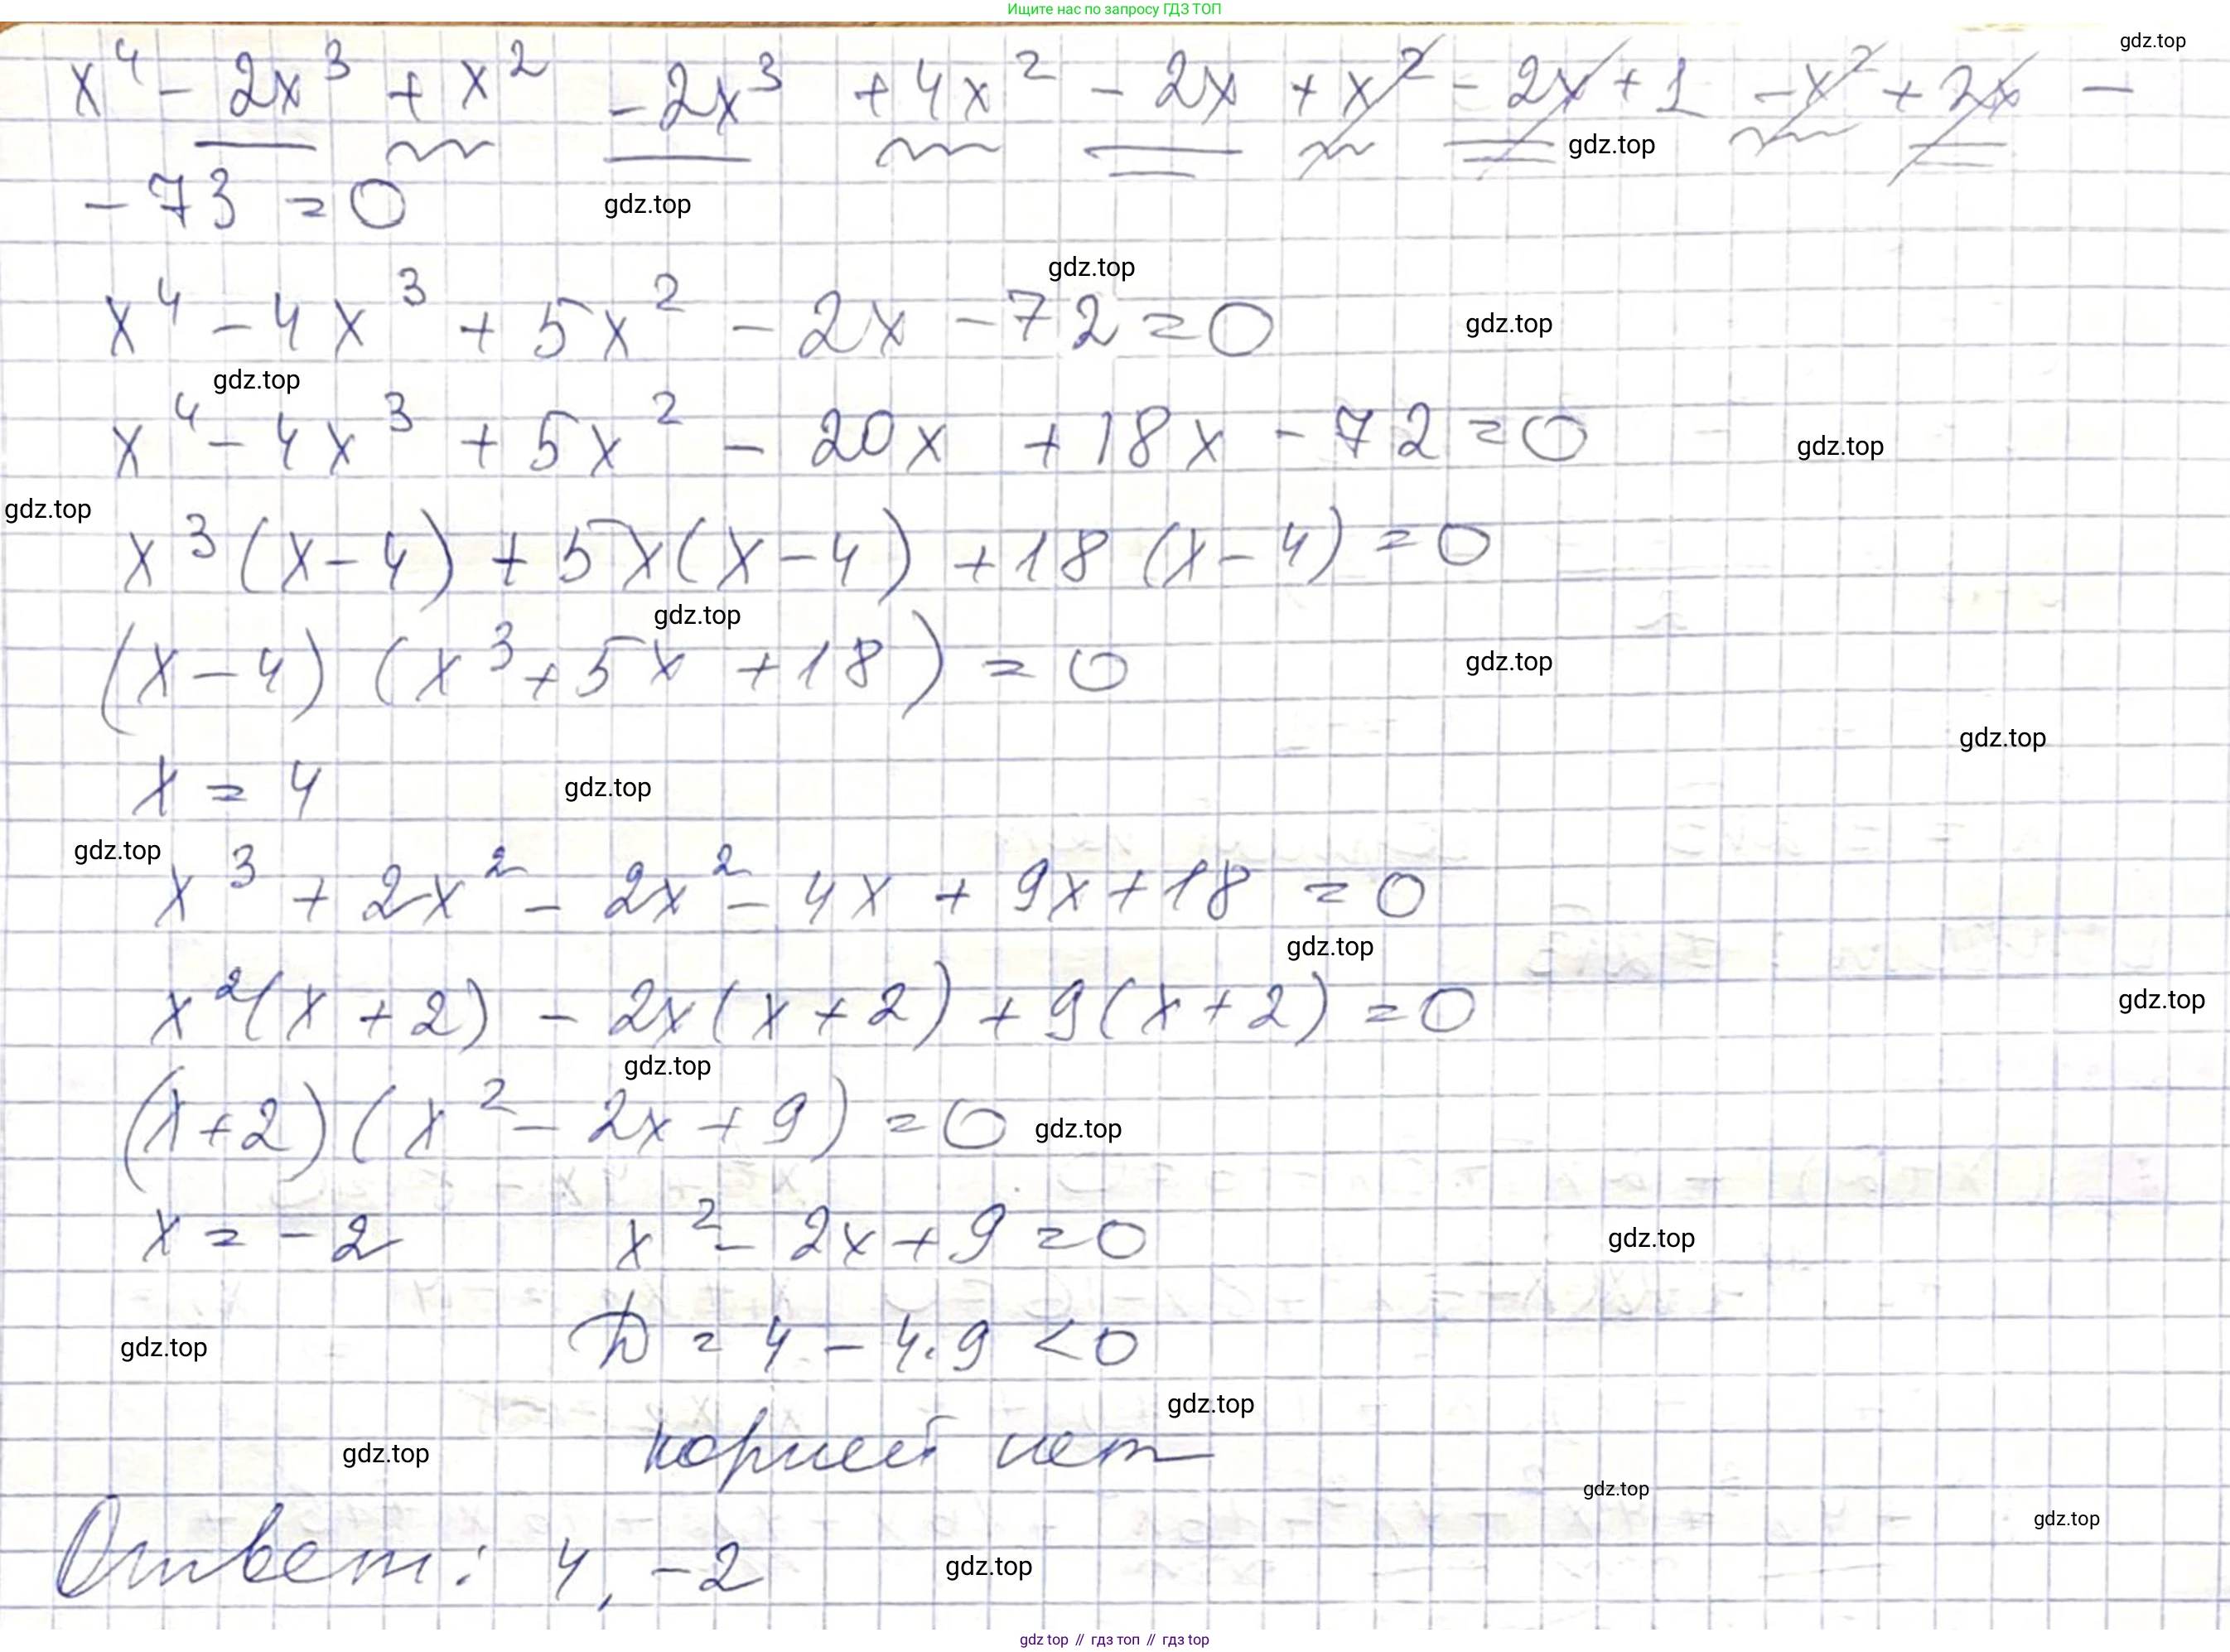 Ищите нас по запросу ГДЗ ТОП
gdz.top
x⁴ - 2x³ + x² - 2x³ + 4x² - 2x + x² - 2x + 1 - x² + 2x -
gdz.top
- 73 = 0
gdz.top
gdz.top
x⁴ - 4x³ + 5x² - 2x - 72 = 0
gdz.top
gdz.top
x⁴ - 4x³ + 5x² - 20x + 18x - 72 = 0
gdz.top
gdz.top
x³(x - 4) + 5x(x - 4) + 18(x - 4) = 0
gdz.top
(x - 4) (x³ + 5x + 18) = 0
gdz.top
gdz.top
x = 4
gdz.top
gdz.top
x³ + 2x² - 2x² - 4x + 9x + 18 = 0
gdz.top
x²(x + 2) - 2x(x + 2) + 9(x + 2) = 0
gdz.top
gdz.top
(x + 2) (x² - 2x + 9) = 0
gdz.top
x = -2 x² - 2x + 9 = 0
gdz.top
D = 4 - 4·9 < 0
gdz.top
gdz.top
корней нет
gdz.top
gdz.top
gdz.top
Ответ: 4, -2
gdz.top
gdz top // гдз топ // гдз top